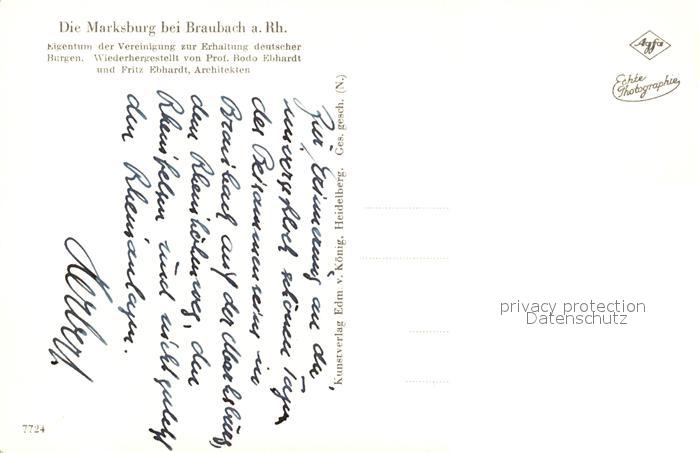 Die Marksburg bei Braubach a. Rh.
Eigentum der Vereinigung zur Erhaltung deutscher
Burgen. Wiederhergestellt von Prof. Bodo Ebhardt
und Fritz Ebhardt, Architekten
Agfa
Echte
Photographie
Zur Erinnerung an die
unvergeßlich schönen Tage
des Beisammenseins in
Braubach auf der Marksburg,
dem Rheinhöhenweg, den
Rheinfelsen und nicht zuletzt
den Rheinanlagen.
Herbert
Kunstverlag Edm v. König, Heidelberg. Ges. gesch. (N.)
privacy protection
Datenschutz
7724